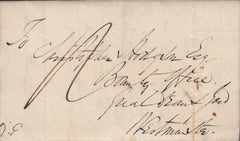 To
Christopher Hodgson Esq
Bounty Office
Great Deans Yard
Westminster